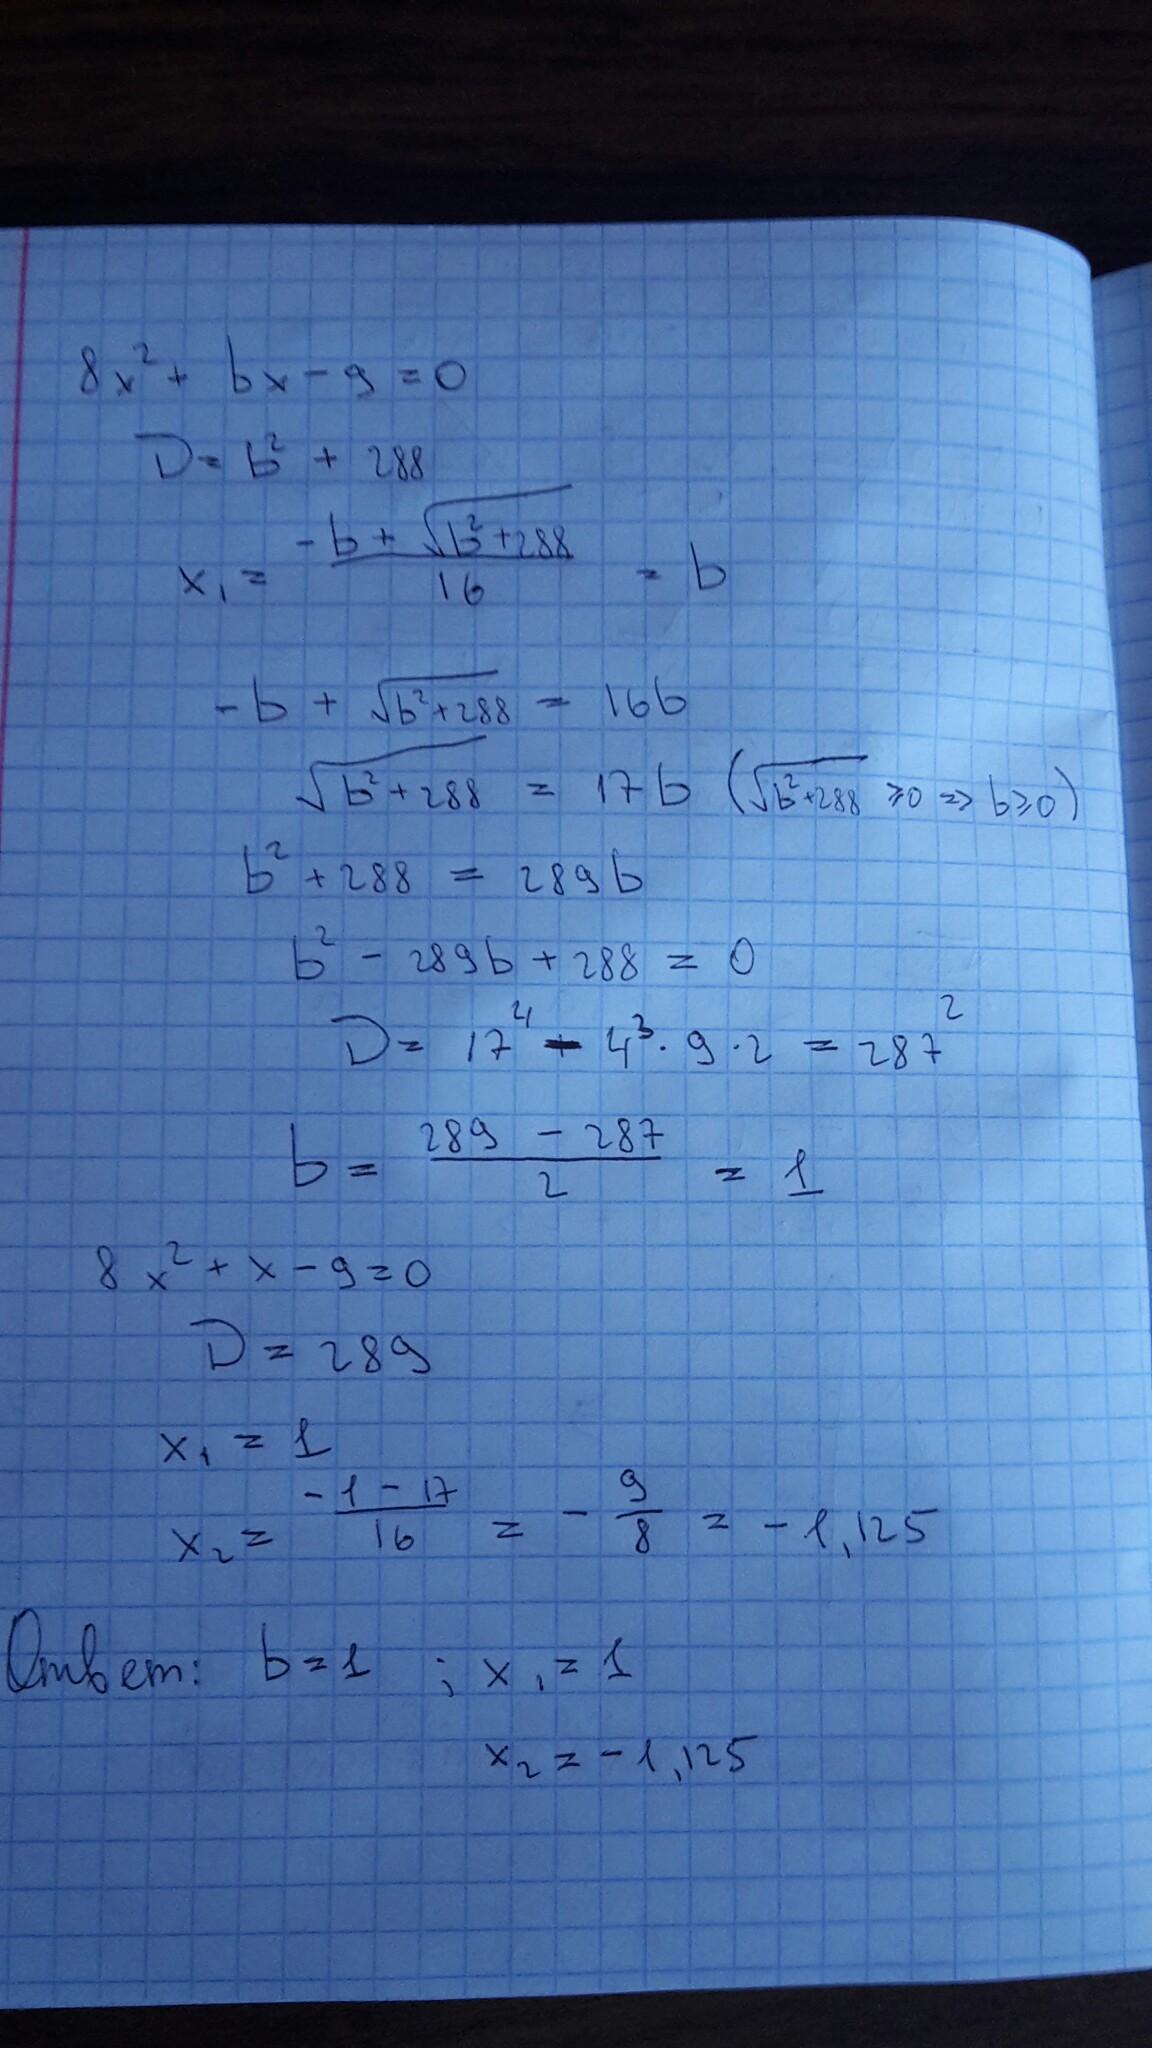 8x² + bx - 9 = 0
D = b² + 288
x₁ = (-b + √(b²+288)) / 16 = b
-b + √(b²+288) = 16b
√(b²+288) = 17b (√(b²+288) ≥0 => b≥0)
b² + 288 = 289b
b² - 289b + 288 = 0
D = 17⁴ - 4³ · 9 · 2 = 287²
b = (289 - 287) / 2 = 1
8x² + x - 9 = 0
D = 289
x₁ = 1
x₂ = (-1 - 17) / 16 = - 9/8 = -1,125
Ответ: b = 1 ; x₁ = 1
x₂ = -1,125